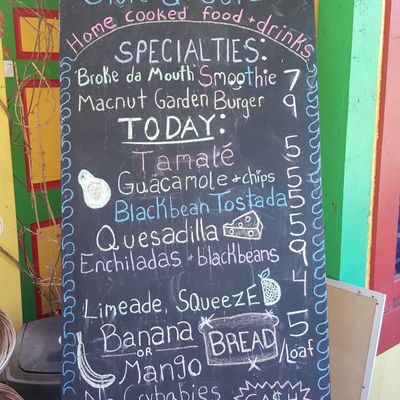 Home cooked food + drinks
SPECIALTIES:
Broke da Mouth Smoothie 7
Macnut Garden Burger 9
TODAY:
Tamalé 5
Guacamole + chips 5
Blackbean Tostada 5
Quesadilla 5
Enchiladas + blackbeans 9
Limeade, SqueeZE 4
Banana or Mango BREAD 5/loaf
No Crybabies
CA$H